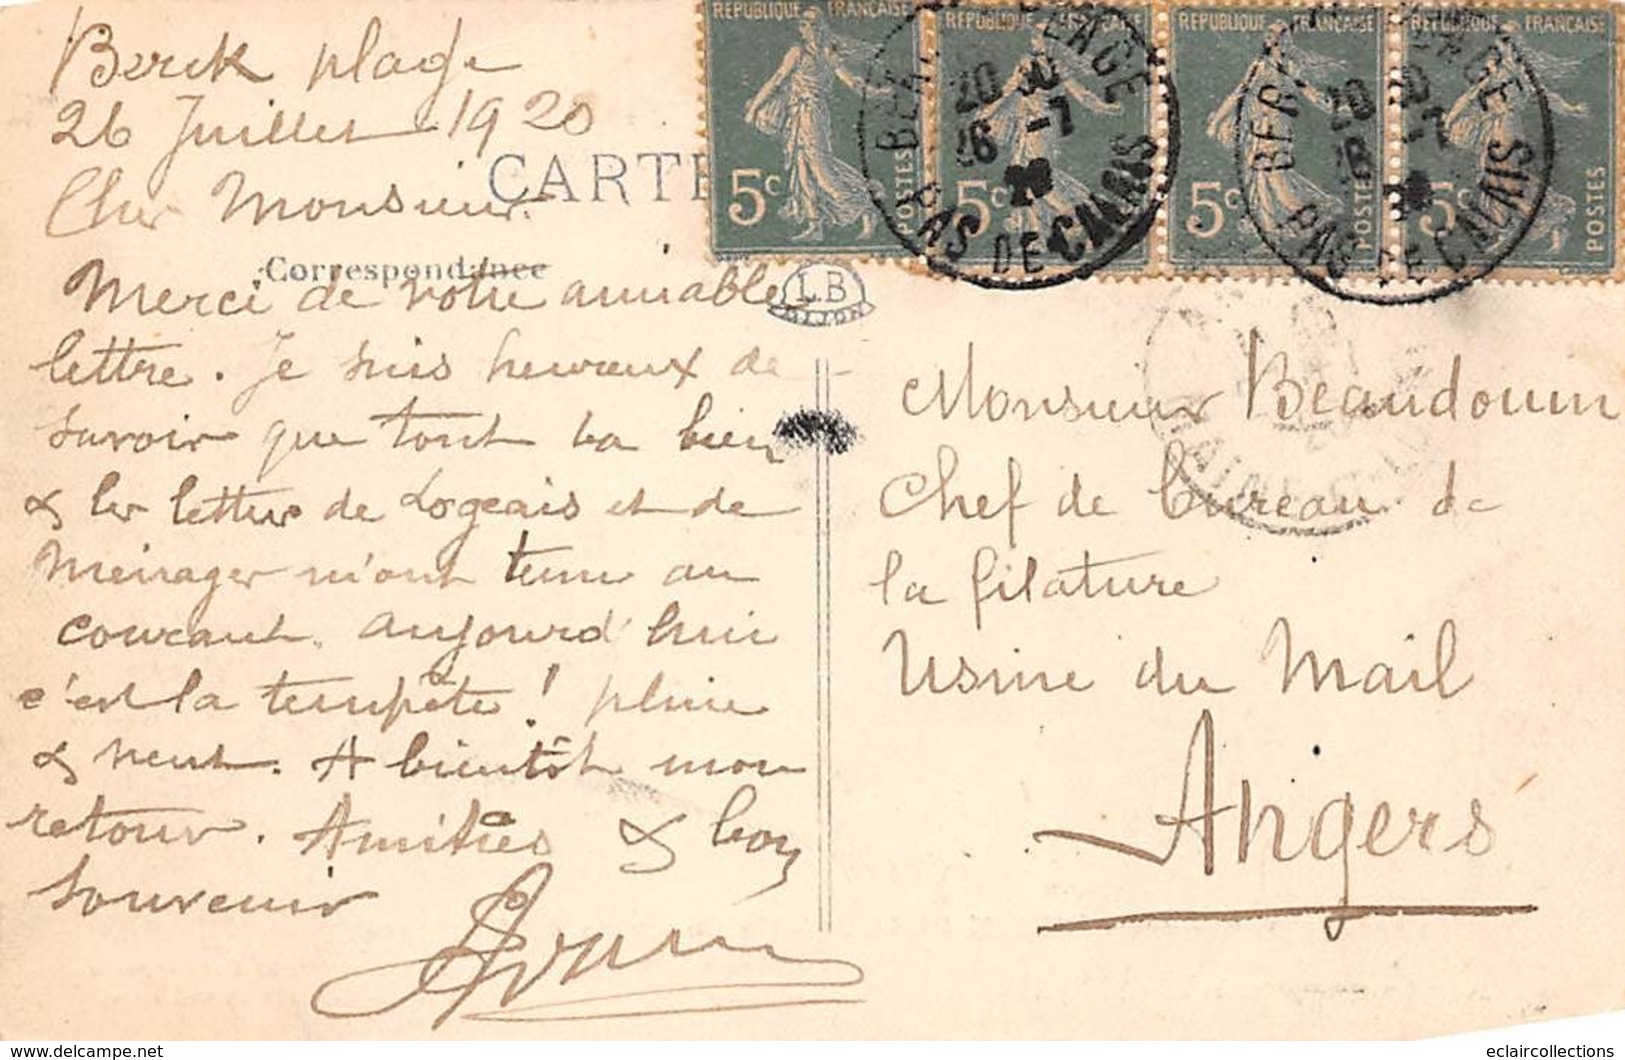 Berck plage
26 Juillet 1920
Cher Monsieur
CARTE
Correspondance
Merci de votre aimable
lettre. Je suis heureux de
savoir que tout va bien
& les lettres de Logeais et de
Ménager m'ont tenu au
courant. aujourd'hui
c'est la tempête ! pluie
& vent. A bientôt mon
retour. Amitiés & bon
souvenir
REPUBLIQUE FRANÇAISE
5c POSTES
REPUBLIQUE FRANÇAISE
5c
REPUBLIQUE FRANÇAISE
5c POSTES
REPUBLIQUE FRANÇAISE
5c POSTES
BERCK PLAGE
20 30
26 -7
20
PAS DE CALAIS
BERCK PLAGE
20 30
26 -7
20
PAS DE CALAIS
L.B
DIJON
Monsieur Beaudouin
Chef de bureau de
la filature
Usine du Mail
Angers
MAINE-ET-LOIRE
Delcampe.net
eclaircollections